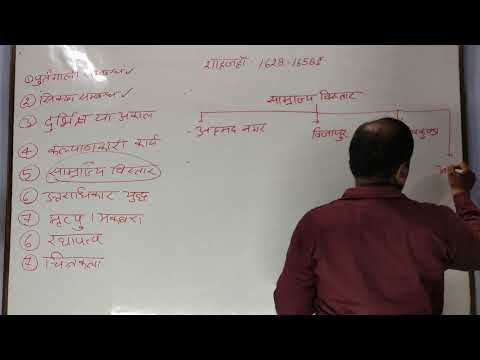 ① पुर्तगाली सम्बन्ध ✓
② सिक्ख सम्बन्ध ✓
③ दुर्भिक्ष या अकाल
④ कल्याणकारी कार्य
⑤ साम्राज्य विस्तार
⑥ उत्तराधिकार युद्ध
⑦ मृत्यु / मकबरा
⑥ स्थापत्य
⑦ चित्रकला
शाहजहाँ - 1628-1658ई
साम्राज्य विस्तार
अहमद नगर
बिजापुर